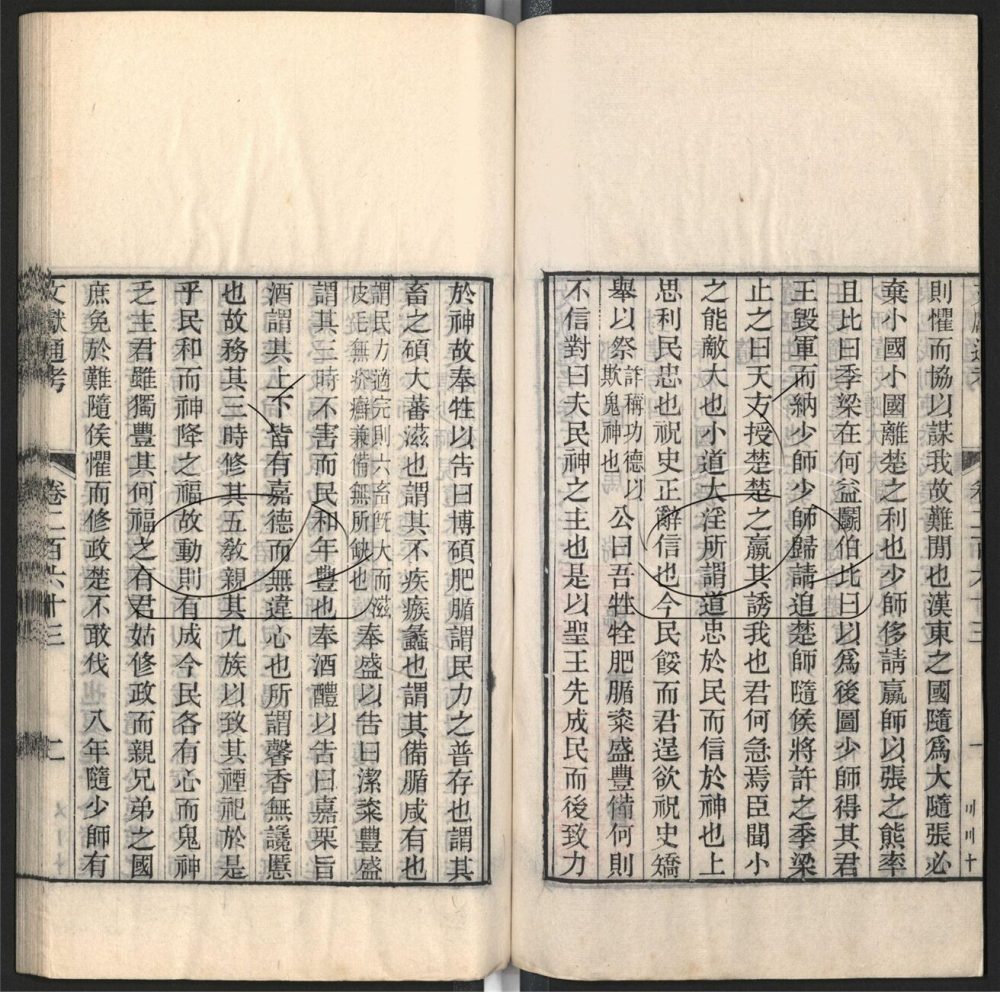 則懼而協以謀我故難閒也漢東之國隨爲大隨張必
棄小國小國離楚之利也少師侈請羸師以張之熊率
且比曰季梁在何益鬭伯比曰以爲後圖少師得其君
王毀軍而納少師少師歸請追楚師隨侯將許之季梁
止之曰天方授楚楚之羸其誘我也君何急焉臣聞小
之能敵大也小道大淫所謂道忠於民而信於神也上
思利民忠也祝史正辭信也今民餒而君逞欲祝史矯
舉以祭詐稱功德以欺鬼神也公曰吾牲牷肥腯粢盛豐備何則
不信對曰夫民神之主也是以聖王先成民而後致力
於神故奉牲以告曰博碩肥腯謂民力之普存也謂其
畜之碩大蕃滋也謂其不疾瘯蠡也謂其備腯咸有也
謂民力適完則六畜旣大而滋皮毛無疥癬兼備無所缺也奉盛以告曰潔粢豐盛
謂其三時不害而民和年豐也奉酒醴以告曰嘉栗旨
酒謂其上下皆有嘉德而無違心也所謂馨香無讒慝
也故務其三時修其五敎親其九族以致其禋祀於是
乎民和而神降之福故動則有成今民各有心而鬼神
乏主君雖獨豐其何福之有君姑修政而親兄弟之國
庶免於難隨侯懼而修政楚不敢伐 八年隨少師有
文獻通考 卷二百六十三 二